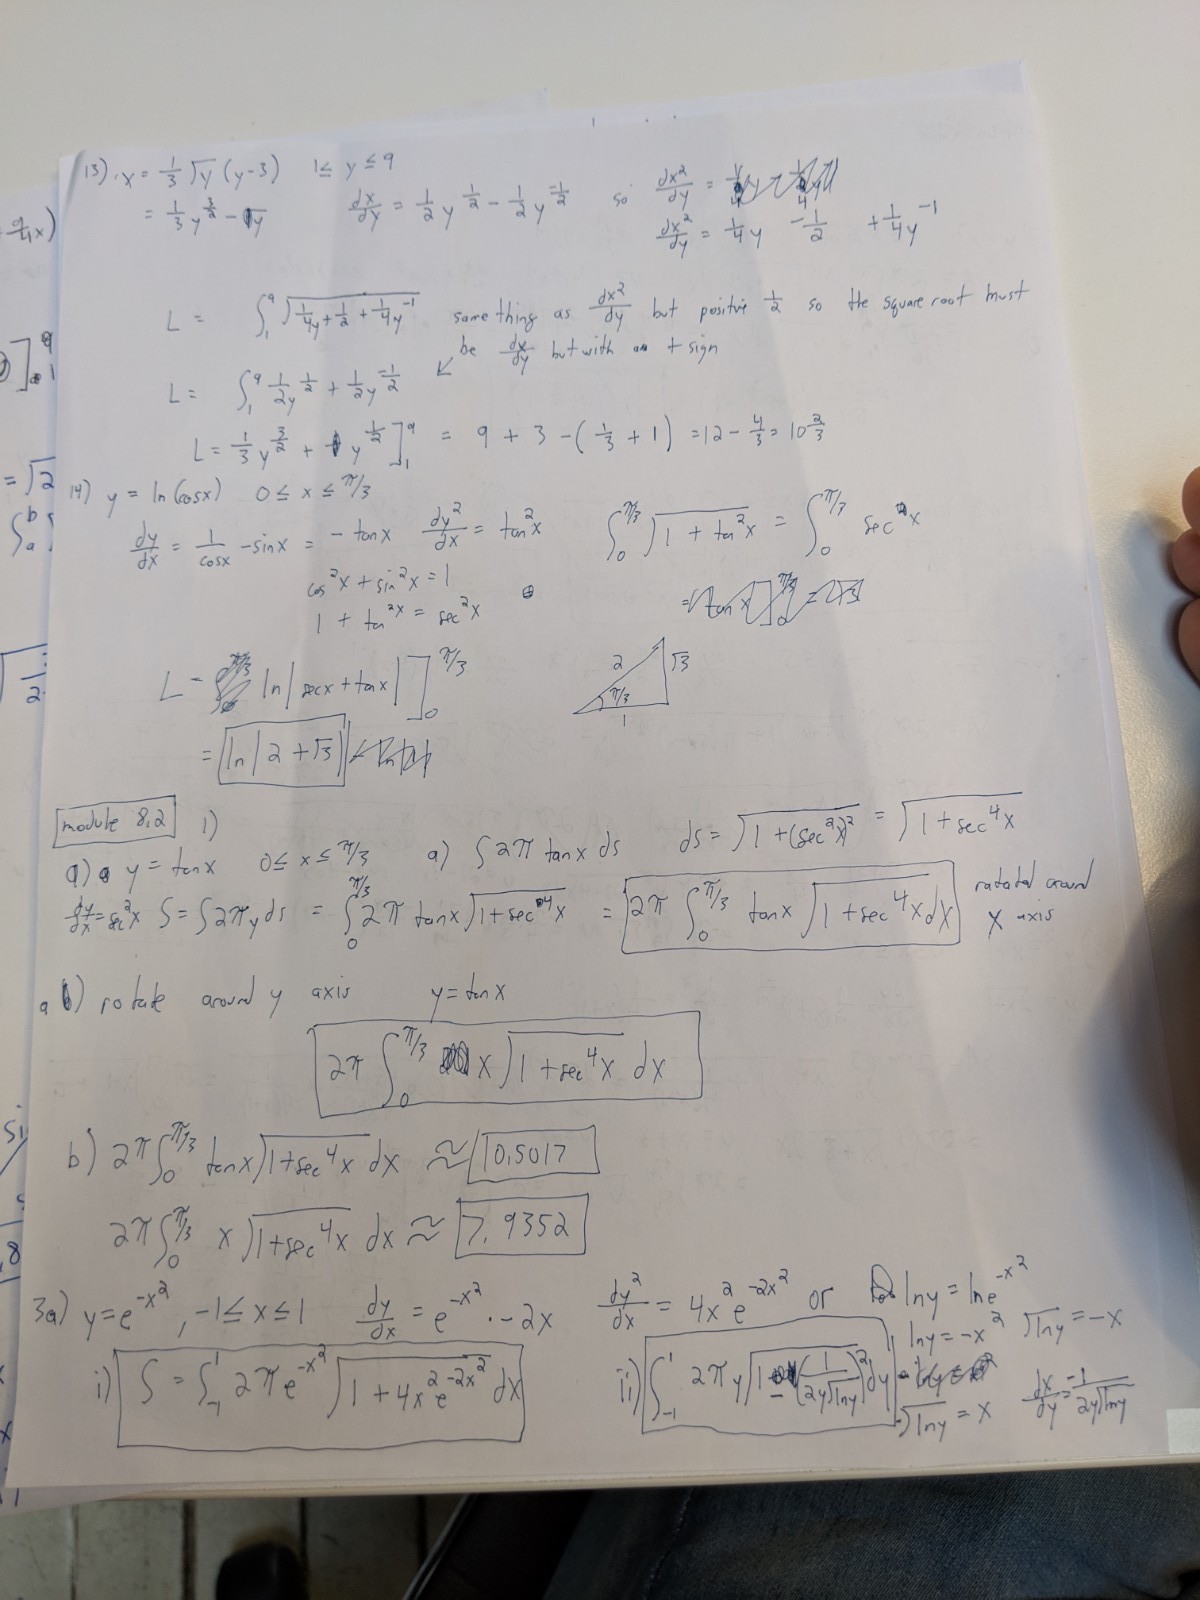 13) x = 1/3 √y (y-3)   1 ≤ y ≤ 9
= 1/3 y^(3/2) - √y   dx/dy = 1/2 y^(1/2) - 1/2 y^(-1/2)   so
dx²/dy = 1/4 y - 1/2 + 1/4 y^(-1)
L = ∫₁⁹ √(1/4 y + 1/2 + 1/4 y^(-1))   same thing as dx²/dy but positive 1/2 so the square root must
be dx/dy but with + sign
L = ∫₁⁹ 1/2 y^(1/2) + 1/2 y^(-1/2) ↙
L = 1/3 y^(3/2) + y^(1/2) ]₁⁹ = 9 + 3 - (1/3 + 1) = 12 - 4/3 = 10 2/3
14) y = ln(cosx)   0 ≤ x ≤ π/3
dy/dx = 1/cosx · -sinx = -tanx   dy²/dx = tan²x   ∫₀^(π/3) √(1 + tan²x) = ∫₀^(π/3) sec x
cos²x + sin²x = 1
1 + tan²x = sec²x
L = ln|secx + tanx| ]₀^(π/3)   2   √3   π/3   1
= ln|2 + √3|
module 8.2   1)
a) y = tanx   0 ≤ x ≤ π/3   a) ∫2π tanx ds   ds = √(1 + (sec²x)²) = √(1 + sec⁴x)
dy/dx = sec²x   S = ∫2πy ds = ∫₀^(π/3) 2π tanx √(1 + sec⁴x) = 2π ∫₀^(π/3) tanx √(1 + sec⁴x) dx   rotated around
x axis
a) rotate around y axis   y = tanx
2π ∫₀^(π/3) x √(1 + sec⁴x) dx
b) 2π ∫₀^(π/3) tanx √(1 + sec⁴x) dx ≈ 10.5017
2π ∫₀^(π/3) x √(1 + sec⁴x) dx ≈ 7.9352
3a) y = e^(-x²), -1 ≤ x ≤ 1   dy/dx = e^(-x²) · -2x   dy²/dx = 4x² e^(-2x²) or   lny = lne^(-x²)
lny = -x²   √lny = -x
i) S = ∫₋₁¹ 2π e^(-x²) √(1 + 4x² e^(-2x²)) dx   ii) ∫₋₁¹ 2πy √(1 - (1/(2y√lny))²) dy
-√lny = x   dx/dy = -1/(2y√lny)